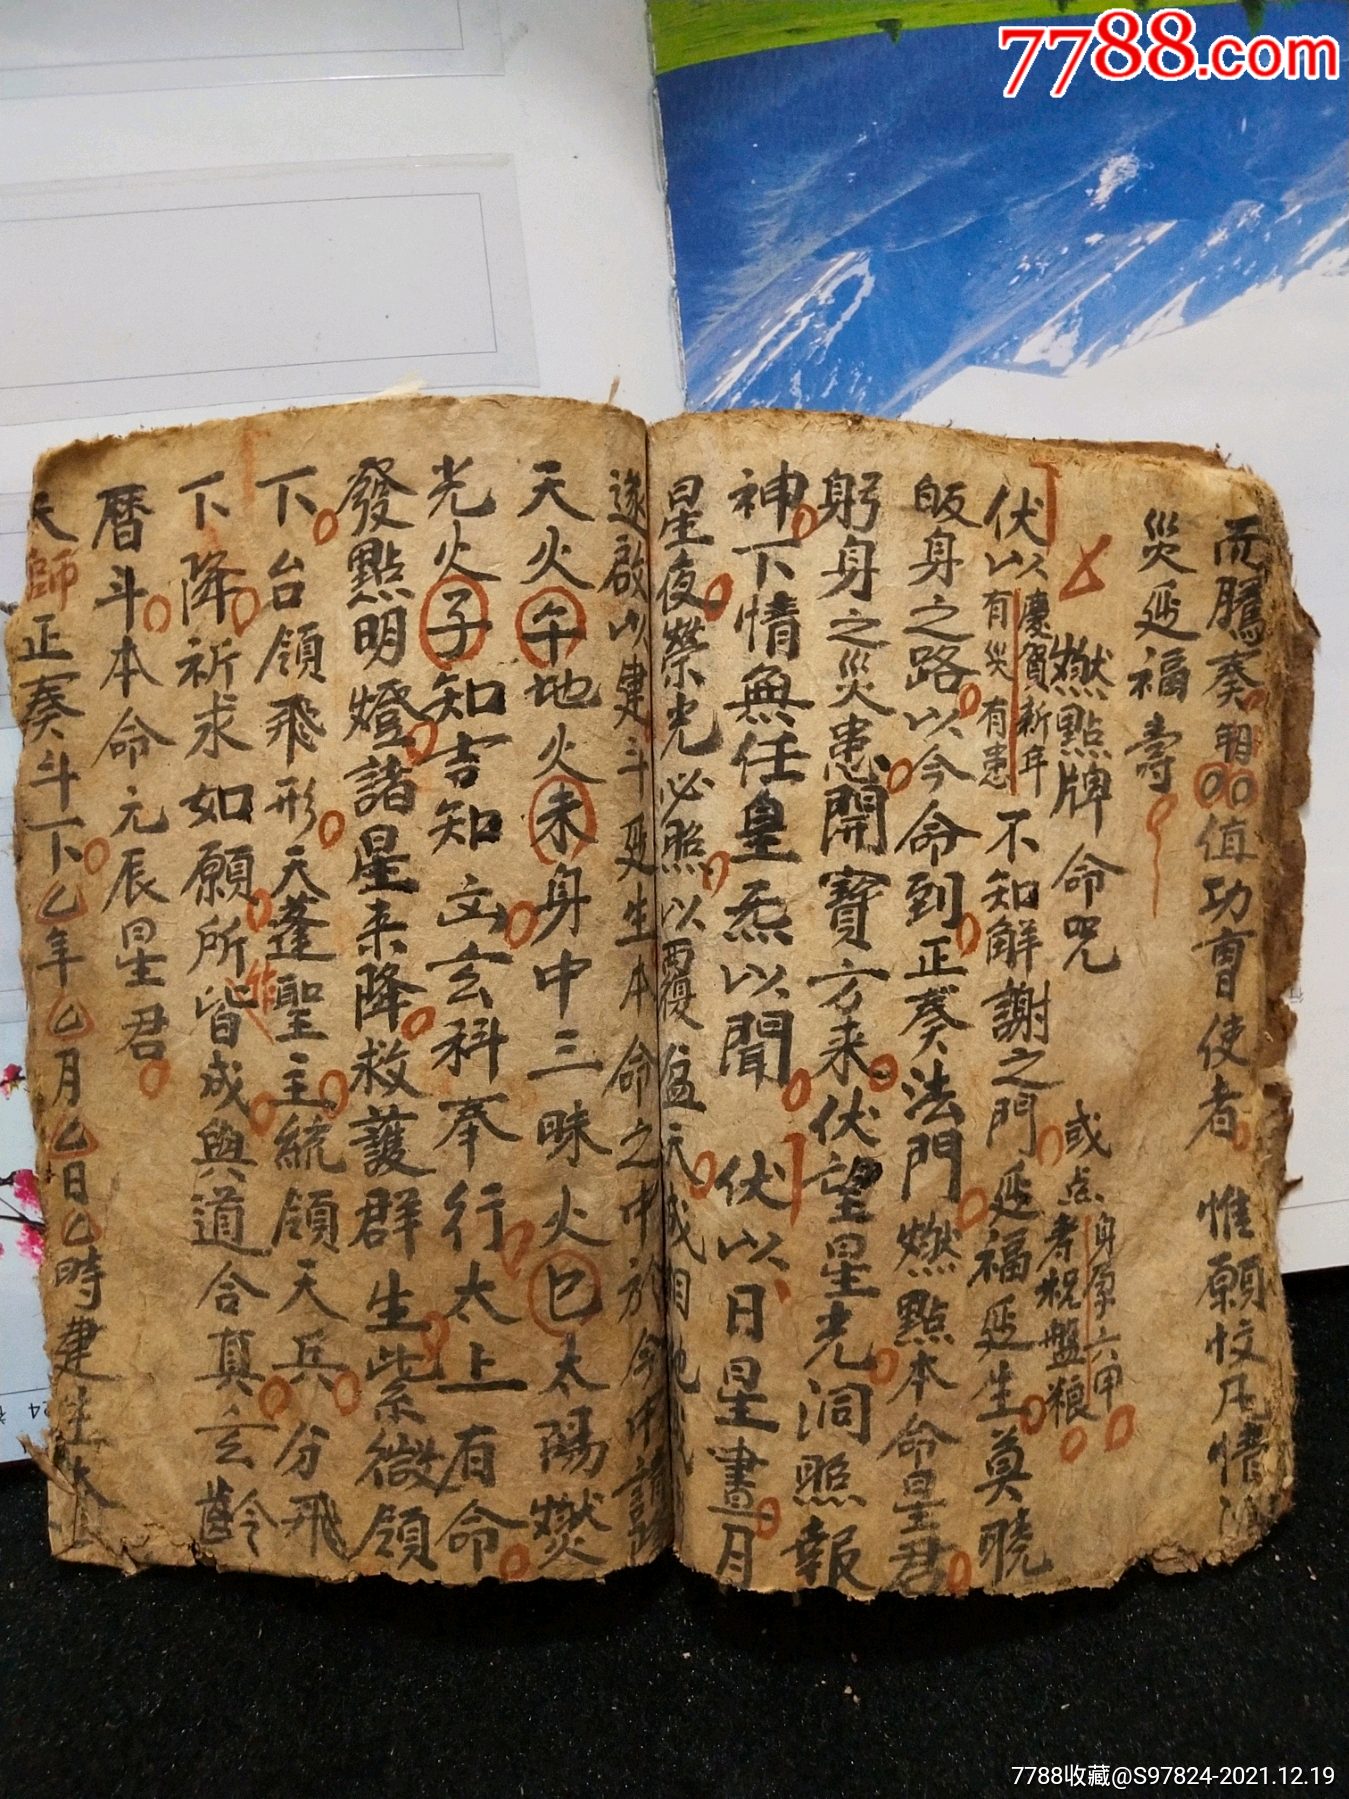 7788.com
而騰奏明值功曹使者惟願忟凡情
災延福壽
燃點牌命呪 或点者祝盤粮 身原六甲
伏以慶賀新年有災有患不知解謝之門延福延生莫曉
皈身之路以今命到正奏法門燃點本命星君
躬身之災患開寶方来伏望星光洞照報
神下情無任皇炁以聞 伏以日星晝月
星夜榮光必照以覆
遂啟以建斗延生本命之中方今中
天火午地火未身中三昧火巳太陽燃
光火子知吉知玄科奉行太上有命
發點明燈諸星来降救護群生紫微領
下台領飛形天蓬聖主統領天兵分飛
下降祈求如願所皆成與道合真玄齡
曆斗本命元辰星君
天師正奏斗下乙年乙月乙日乙時建生
7788收藏@S97824-2021.12.19